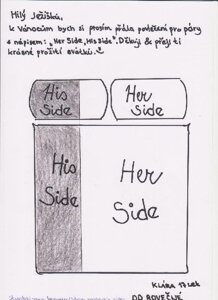 Milý Ježíšku,
k Vánocům bych si prosím přála povlečení pro páry
s nápisem: „Her Side, His Side". Děkuji & přeji ti
krásné prožití svátků.
His
Side
Her
Side
His
Side
Her
Side
KLÁRA 17 let
DD BOVEČNÉ